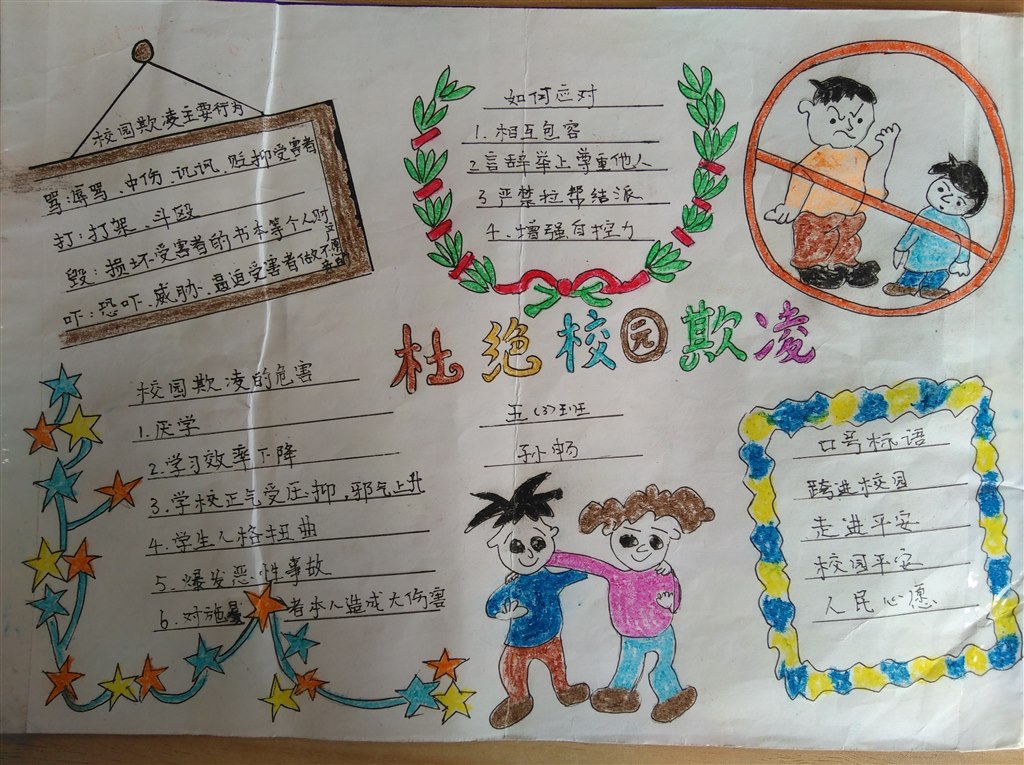 校园欺凌主要行为
骂:辱骂、中伤、讥讽、贬抑受害者
打:打架、斗殴
毁:损坏受害者的书本等个人财
吓:恐吓、威胁、逼迫受害者做不愿
如何应对
1.相互包容
2.言辞举止尊重他人
3.严禁拉帮结派
4.增强自控力
杜绝校园欺凌
五(3)班
孙畅
校园欺凌的危害
1.厌学
2.学习效率下降
3.学校正气受压抑,邪气上升
4.学生人格扭曲
5.爆发恶性事故
6.对施暴者本人造成大伤害
口号标语
跨进校园
走进平安
校园平安
人民心愿